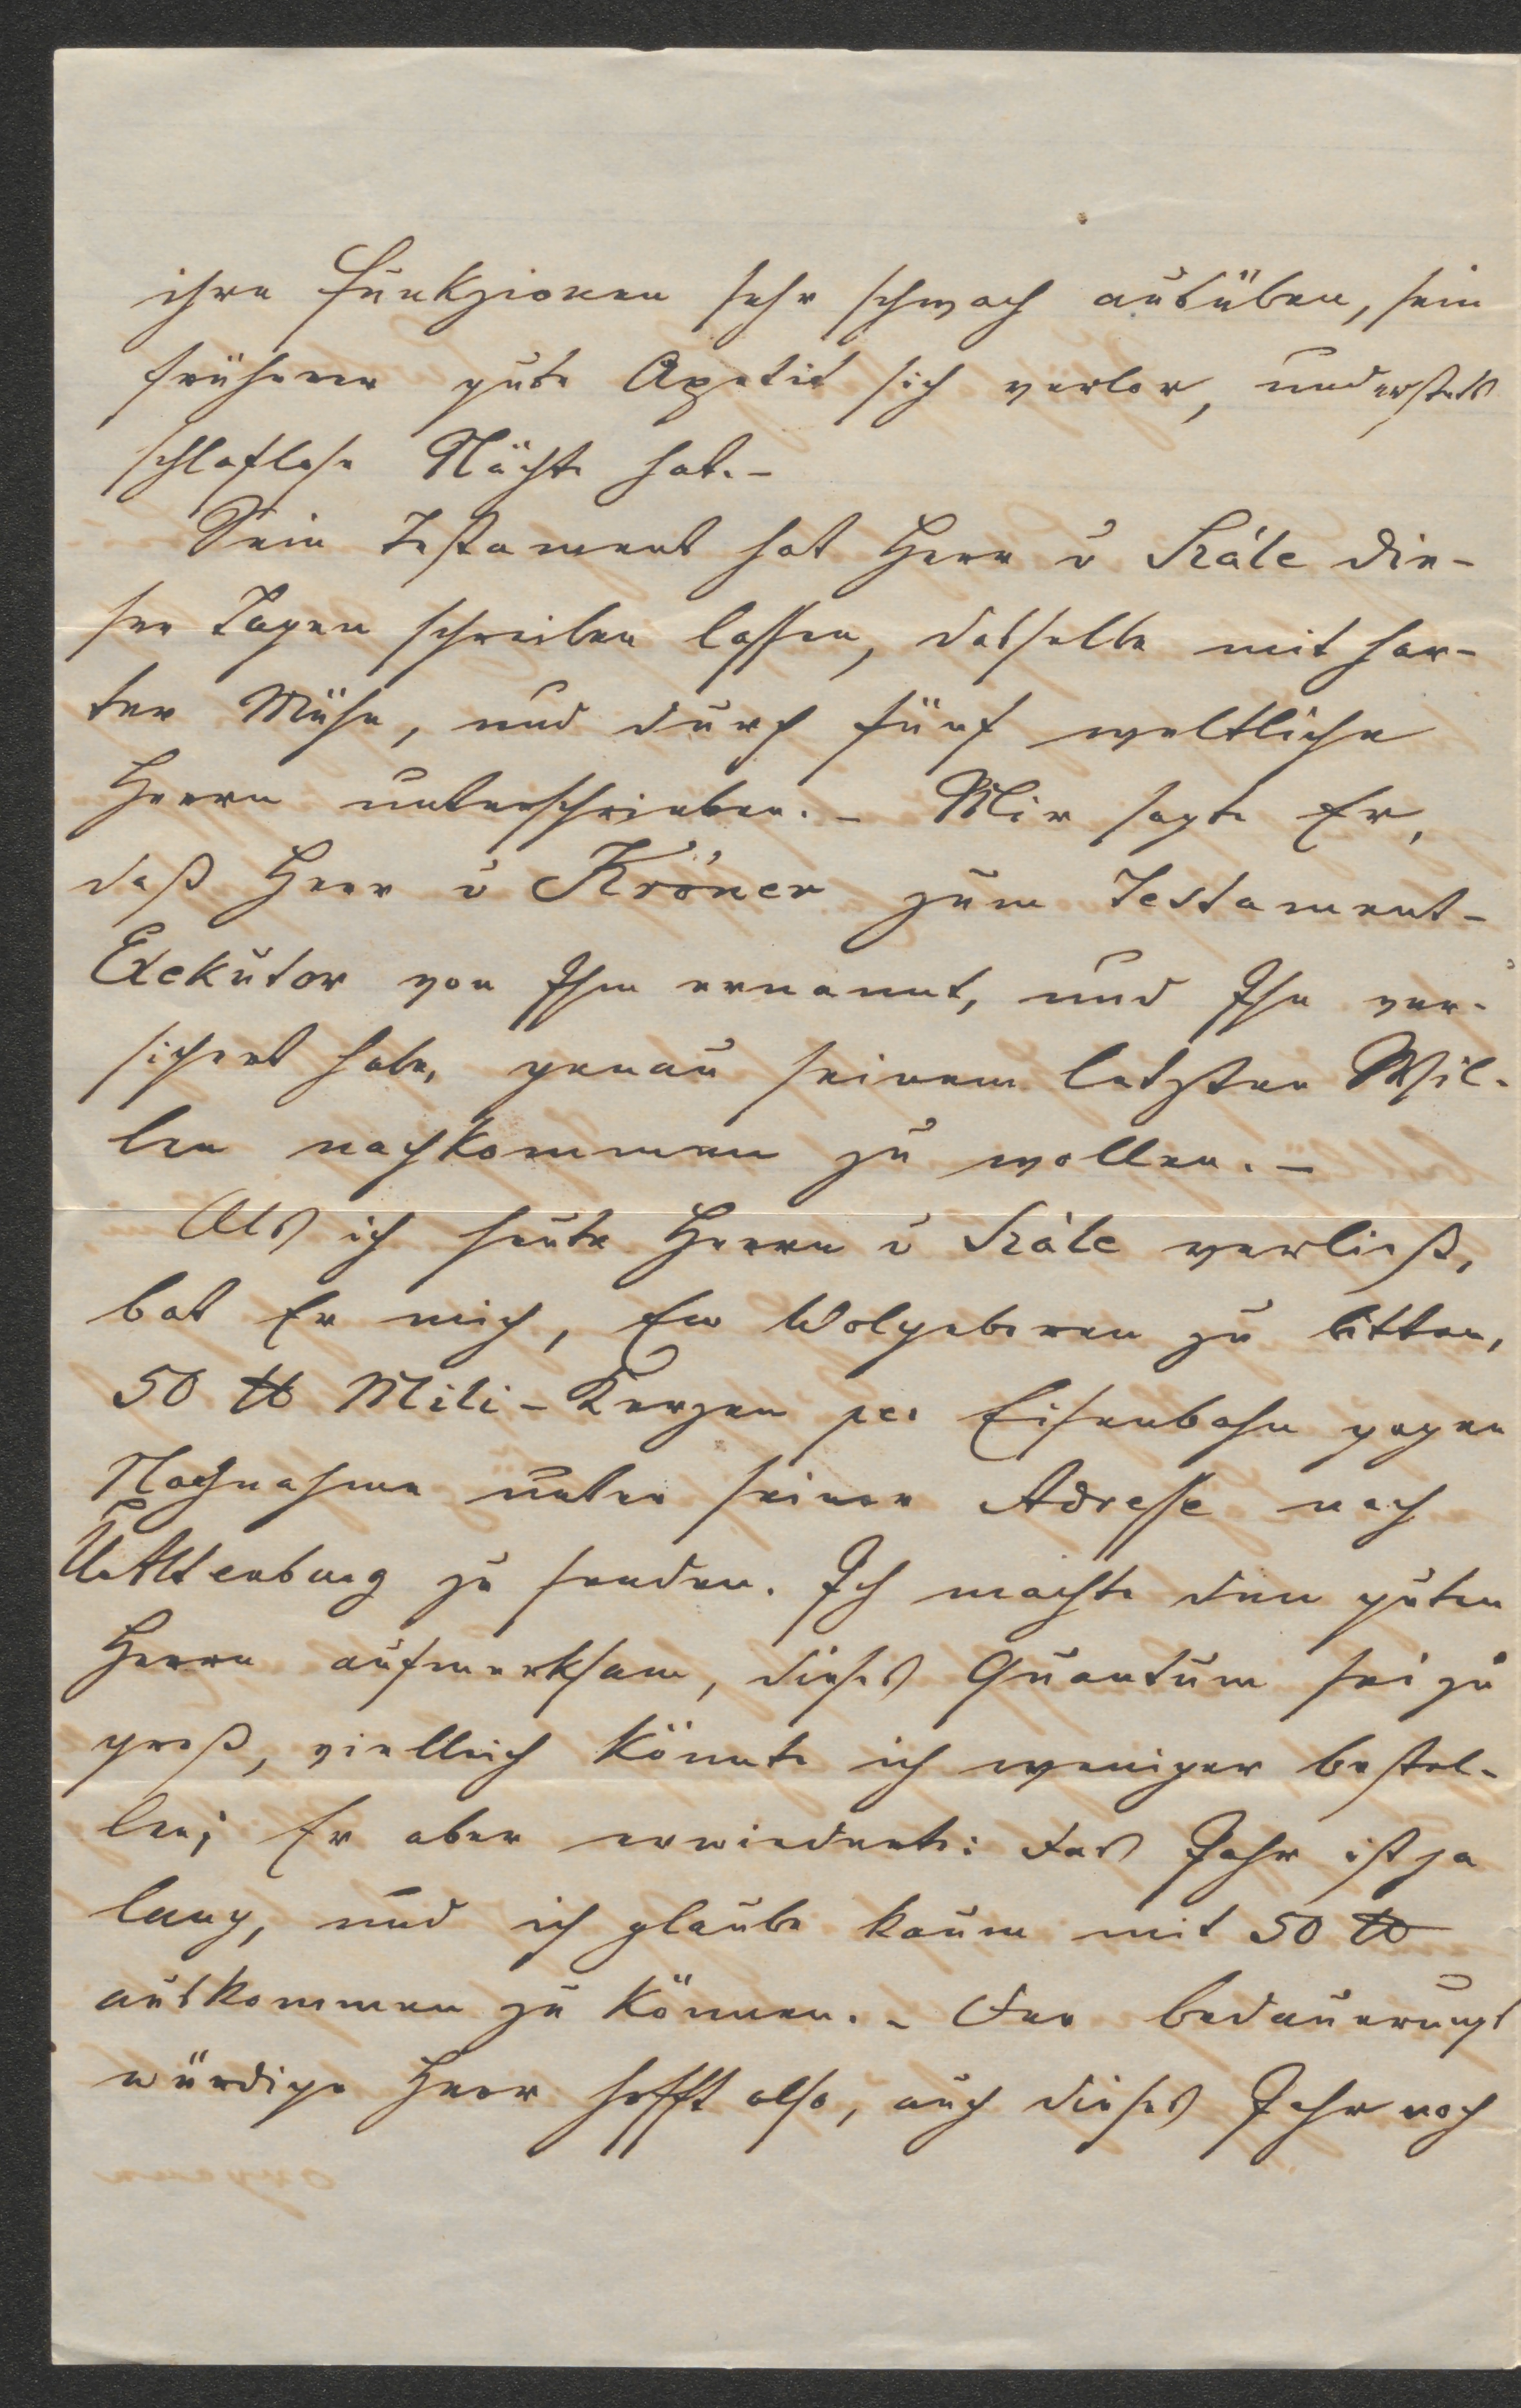 ihre Funkzionen sehr schwach ausüben, sein
früherer gute Apetit sich verlor, und er stets
schlaflose Nächte hat.-
Sein Testament hat Herr v Szále die-
ser Tagen schreiben lassen, dasselbe mit har-
ter Mühe, und durch fünf weltliche
Herrn unterschrieben. - Mir sagte Er,
daß Herr v Kröner zum Testament-
Exekutor von Ihm ernannt, und Ihn ver-
sichert habe, genau seinem letzten Wil-
len nachkommen zu wollen. -
Als ich heute Herrn v Szále verließ,
bat Er mich, Eu Wolgeboren zu bitten,
50 ℔ Mili-Kerzen per Eisenbahn gegen
Nachnahme unter seiner Adresse nach
U. Altenburg zu senden. Ich machte den guten
Herrn aufmerksam, dieses Quantum sei zu
groß, vielleich könnte ich weniger bestel-
len; Er aber erwiederte: das Jahr ist ja
lang, und ich glaube kaum mit 50 ℔
auskommen zu können. - Der bedauerungs
würdige Herr hofft also, auch dieses Jahr noch